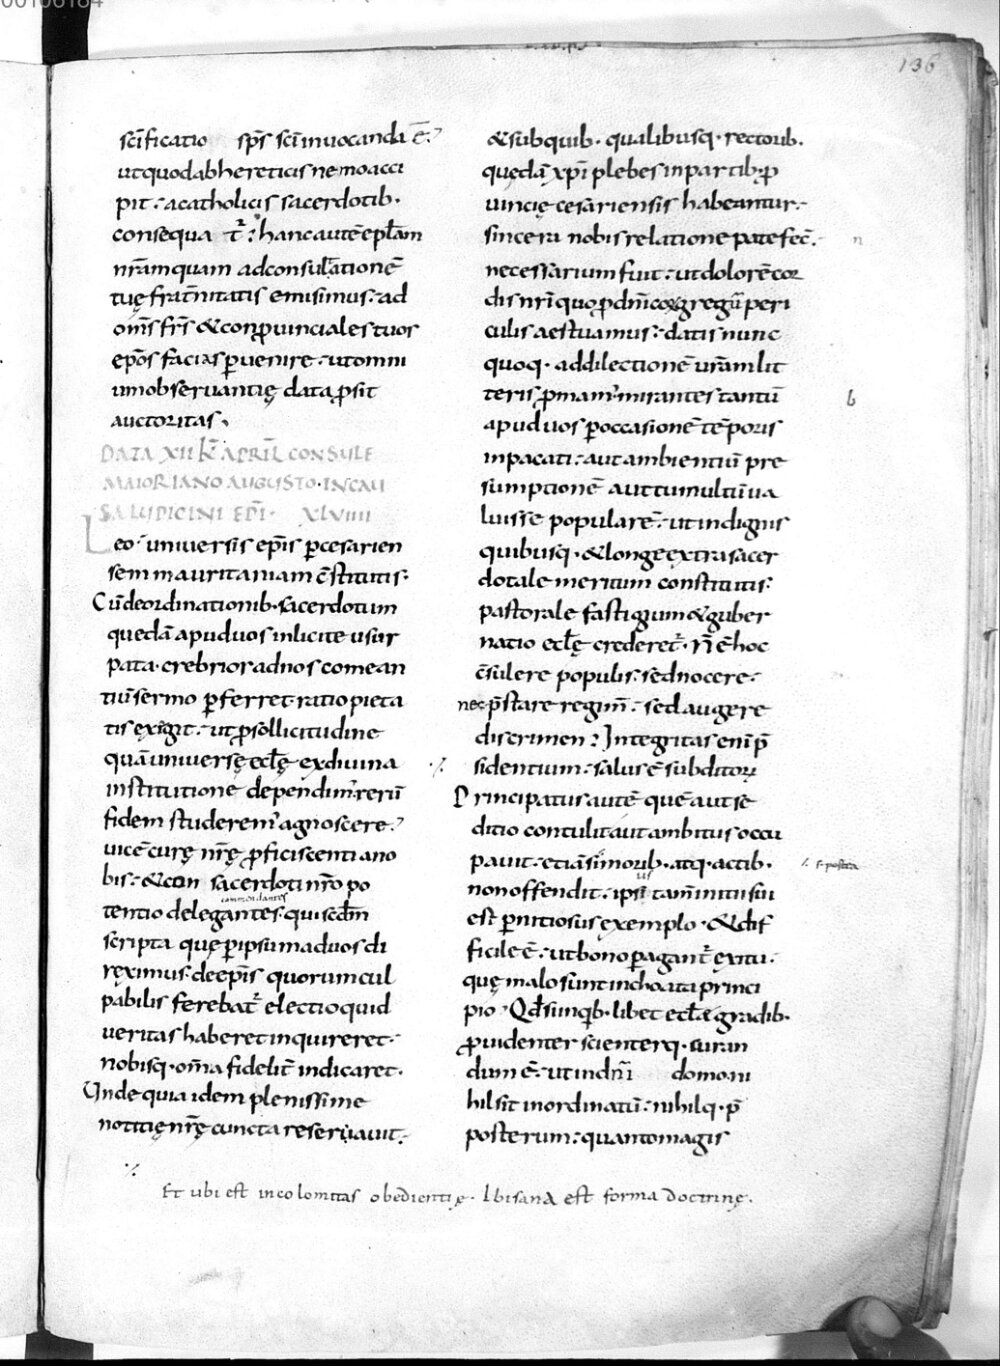 136
sc̄ificatio sp̄s sc̄i inuocanda ē
ut quod ab hereticis nemo acci
pit: a catholicis sacerdotib·
consequatr̄: hanc autē epl̄am
nr̄am quam ad consul̄ationē
tuę frat̄nitatis emisimus: ad
om̄s fr̄s & conꝓuinciales tuos
ep̄os facias ꝑuenire: ut omni
um obseruantię data ꝓsit
auctoritas.
DATA XII KL̄ APRIL̄ CONSULE
MAIORIANO AUGUSTO· IN CAU
SA LUPICINI EP̄I· XLVIIII
Leo· uniuersis ep̄is ꝑ cesarien
sem mauritaniam c̄stitutis·
Cū de ordinationib· sacerdotum
quedā apud uos inlicite usur
pata· crebrior ad nos comean
tiū sermo ꝑferret· ratio pieta
tis exigit: ut ꝓ sollicitudine
quā uniuersę ecl̄ę ex diuina
institutione dependim᾽· rerū
fidem studerem᾽ agnoscere·
uicē curę nr̄ę ꝓficiscenti a no
bis: & con sacerdoti nr̄o po
commendantes
tentio delegantes· qui scd̄m
scripta quę ꝑ ipsum ad uos di
reximus· de ep̄is quorum cul
pabilis ferebatr̄ electio quid
ueritas haberet inquireret·
nobisq· om̄a fidelit̄ indicaret·
Unde quia idem plenissime
notitię nr̄ę cuncta reseruauit·
& sub quib· qualibusq· rectorib·
quędā xp̄i plebes in partib· ꝓ
uincię cesariensis habeantur·
sincera nobis relatione patefec̄· n
necessarium fuit: ut dolorē cor
dis nr̄i quo ꝓ dn̄icoꝝ gregū peri
culis aestuamus: datis nunc
quoq· ad dilectionē ur̄am lit
teris ꝓmam᾽· mirantes tantū b
apud uos ꝑ occasionē tēporis
inpacati: aut ambientiū pre
sumptionē aut tumultū ua
luisse popularē· ut indignis
quibusq· & longe extra sacer
dotale meritum constitutis:
pastorale fastigium & guber
natio ecl̄ę crederetr̄· n̄ ē hoc
c̄sulere populis: sed nocere·
nec p̄stare regim̄· sed augere
discrimen: Integritas enī p̄
·/· sidentium: salus ē subditoꝝ
Principatus autē quē aut se
ditio contulit aut ambitus occu
pauit: etiā si morib· atq· actib·
non offendit· ipsius tam̄ initii sui
est ꝑnitiosus exemplo· & dif
ficile ē· ut bono ꝑagantr̄ exitu·
quę malo sunt inchoata princi
pio· Qd̄ si in qb· libet ecl̄ae gradib·
ꝓuidenter scienterq· curan
dum ē· ut in dn̄i domo ni
hil sit inordinatū· nihilq· p̄
posterum: quanto magis
·/· Et ubi est incolomitas obedientię· Ibi sana est forma doctrinę.